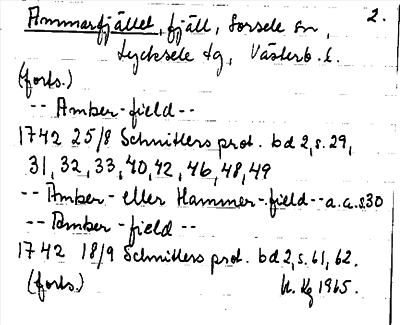 2.
Ammarfjället, fjäll, Sorsele sn,
Lycksele tg, Västerb. l.
(forts.)
-- Amber-field --
1742 25/8 Schnitlers prot. bd 2, s. 29,
31, 32, 33, 40, 42, 46, 48, 49
-- Amber- eller Hammer-field -- a.a.s.30
-- Amber-field --
1742 18/9 Schnitlers prot. bd 2, s. 61, 62.
(forts.) Kg 1965.